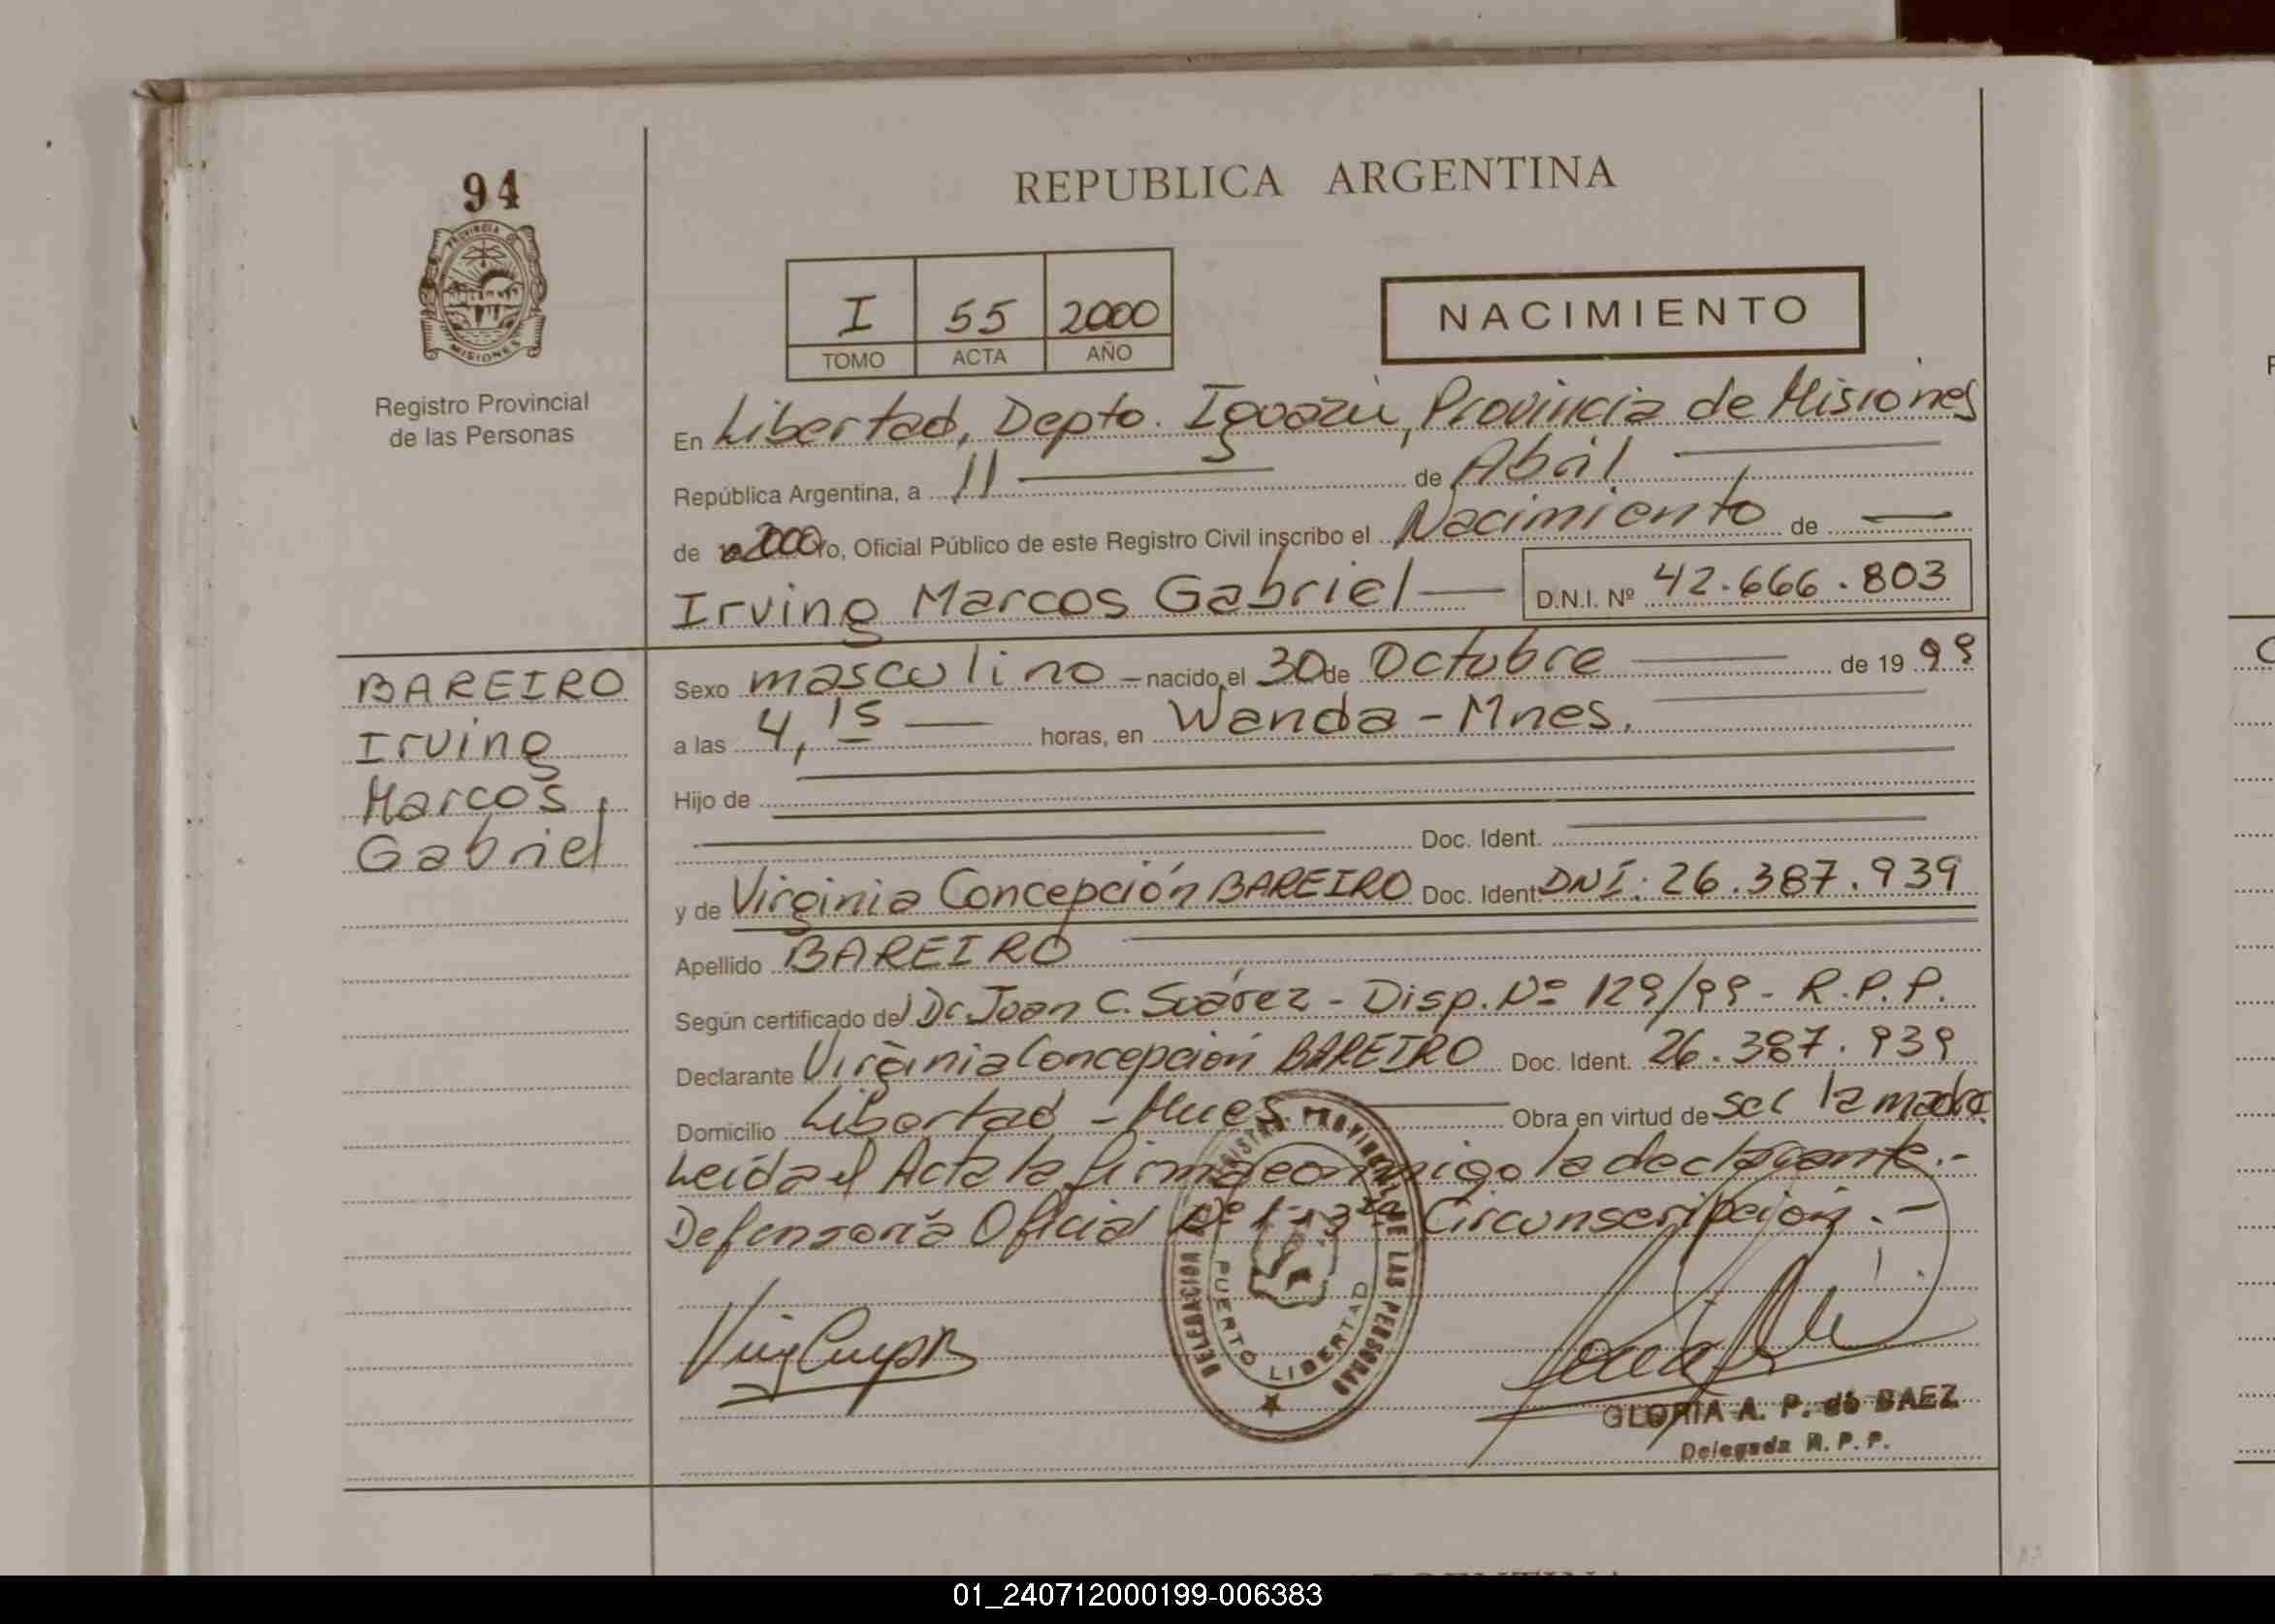 94
PROVINCIA D
MISIONES
Registro Provincial
de las Personas
REPUBLICA ARGENTINA
I 55 2000
TOMO ACTA AÑO
NACIMIENTO
En Libertad, Depto. Iguazú, Provincia de Misiones
República Argentina, a 11 de Abril
de 2000 Yo, Oficial Público de este Registro Civil inscribo el Nacimiento de —
Irving Marcos Gabriel — D.N.I. Nº 42.666.803
BAREIRO
Irving
Marcos
Gabriel
Sexo masculino — nacido el 30 de Octubre de 19 99
a las 4,15 — horas, en Wanda - Mnes.
Hijo de
Doc. Ident.
y de Virginia Concepción BAREIRO Doc. Ident. DNI: 26.387.939
Apellido BAREIRO
Según certificado del Dr. Juan C. Suárez - Disp. Nº 129/99 - R.P.P.
Declarante Virginia Concepción BAREIRO Doc. Ident. 26.387.939
Domicilio Libertad - Mnes Obra en virtud de ser la madre
Leída el Acta la firma conmigo la declarante.-
Defensoría Oficial Nº 1 - 3ra Circunscripción.-
DELEGACION REGISTRO PROVINCIAL DE LAS PERSONAS
PUERTO LIBERTAD
GLORIA A. P. de BAEZ
Delegada R.P.P.
01_240712000199-006383